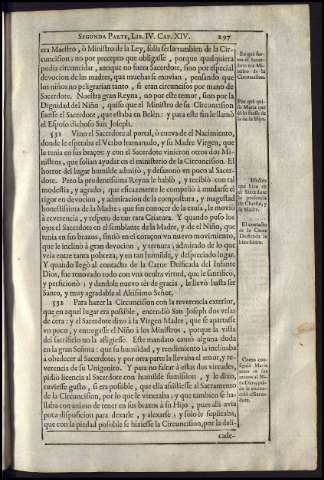 SEGUNDA PARTE, LIB. IV. CAP. XIV. 297
era Maestro, ò Ministro de la Ley, solia ser la tambien de la Cir-
cuncision; no por precepto que obligasse, porque qualquiera
podia circuncidar, aunque no fuera Sacerdote, sino por especial
devocion de las madres, que muchas se movian, pensando que
los niños no peligrarian tanto, si eran circuncisos por mano de
Sacerdote. Nuestra gran Reyna, no por este temor, sino por la
Dignidad del Niño, quiso que el Ministro de su Circuncision
fuesse el Sacerdote, que estaba en Belen: y para este fin le llamò
el Esposo dichoso San Joseph.
531 Vino el Sacerdote al portal, ò cueva de el Nacimiento,
donde le esperaba el Verbo humanado, y su Madre Virgen, que
le tenia en sus braços: y con el Sacerdote vinieron otros dos Mi-
nistros, que solian ayudar en el ministerio de la Circuncision. El
horror del lugar humilde admirò, y desazonò un poco al Sacer-
dote. Pero la prudentissima Reyna le hablò, y recibiò con tal
modestia, y agrado, que eficazmente le compeliò à mudarse el
rigor en devocion, y admiracion de la compostura, y magestad
honestissima de la Madre: que sin conocer de la causa, le moviò
à reverencia, y respeto de tan rara Criatura. Y quando puso los
ojos el Sacerdote en el semblante de la Madre, y de el Niño, que
tenia en sus brazos, sintiò en el coraçon un nuevo movimiento,
que le inclinò à gran devocion, y ternura, admirado de lo que
veia entre tanta pobreza, y en tan humilde, y despreciado lugar.
Y quando llegò al contacto de la Carne Deificada del Infante
Dios, fue renovado todo con una oculta virtud, que le santificò,
y perficionò: y dandole nuevo sèr de gracia, lo llevò hasta ser
Santo, y muy agradable al Altissimo Señor.
532 Para hazer la Circuncision con la reverencia exterior,
que en aquel lugar era posible, encendiò San Joseph dos velas
de cera: y el Sacerdote dixo à la Virgen Madre, que se apartasse
un poco, y entregasse el Niño à los Ministros, porque la vista
del sacrificio no la afligiesse. Este mandato causò alguna duda
en la gran Señora: que su humildad, y rendimiento la inclinaba
à obedecer al Sacerdote; y por otra parte la llevaba el amor, y re-
verencia de su Unigenito. Y para no faltar à estas dos virtudes,
pidiò licencia al Sacerdote con humilde sumission, y le dixo,
tuviesse gusto, si era posible, que ella assistiesse al Sacramento
de la Circuncision, por lo que le veneraba; y que tambien se ha-
llaba con animo de tener en sus brazos à su Hijo, pues alli avia
poca disposicion para dexarle, y alexarse: y solo le suplicaba,
que con la piedad posible se hiziesse la Circuncision, por la deli-
cade-
Por què qui-
so Maria que